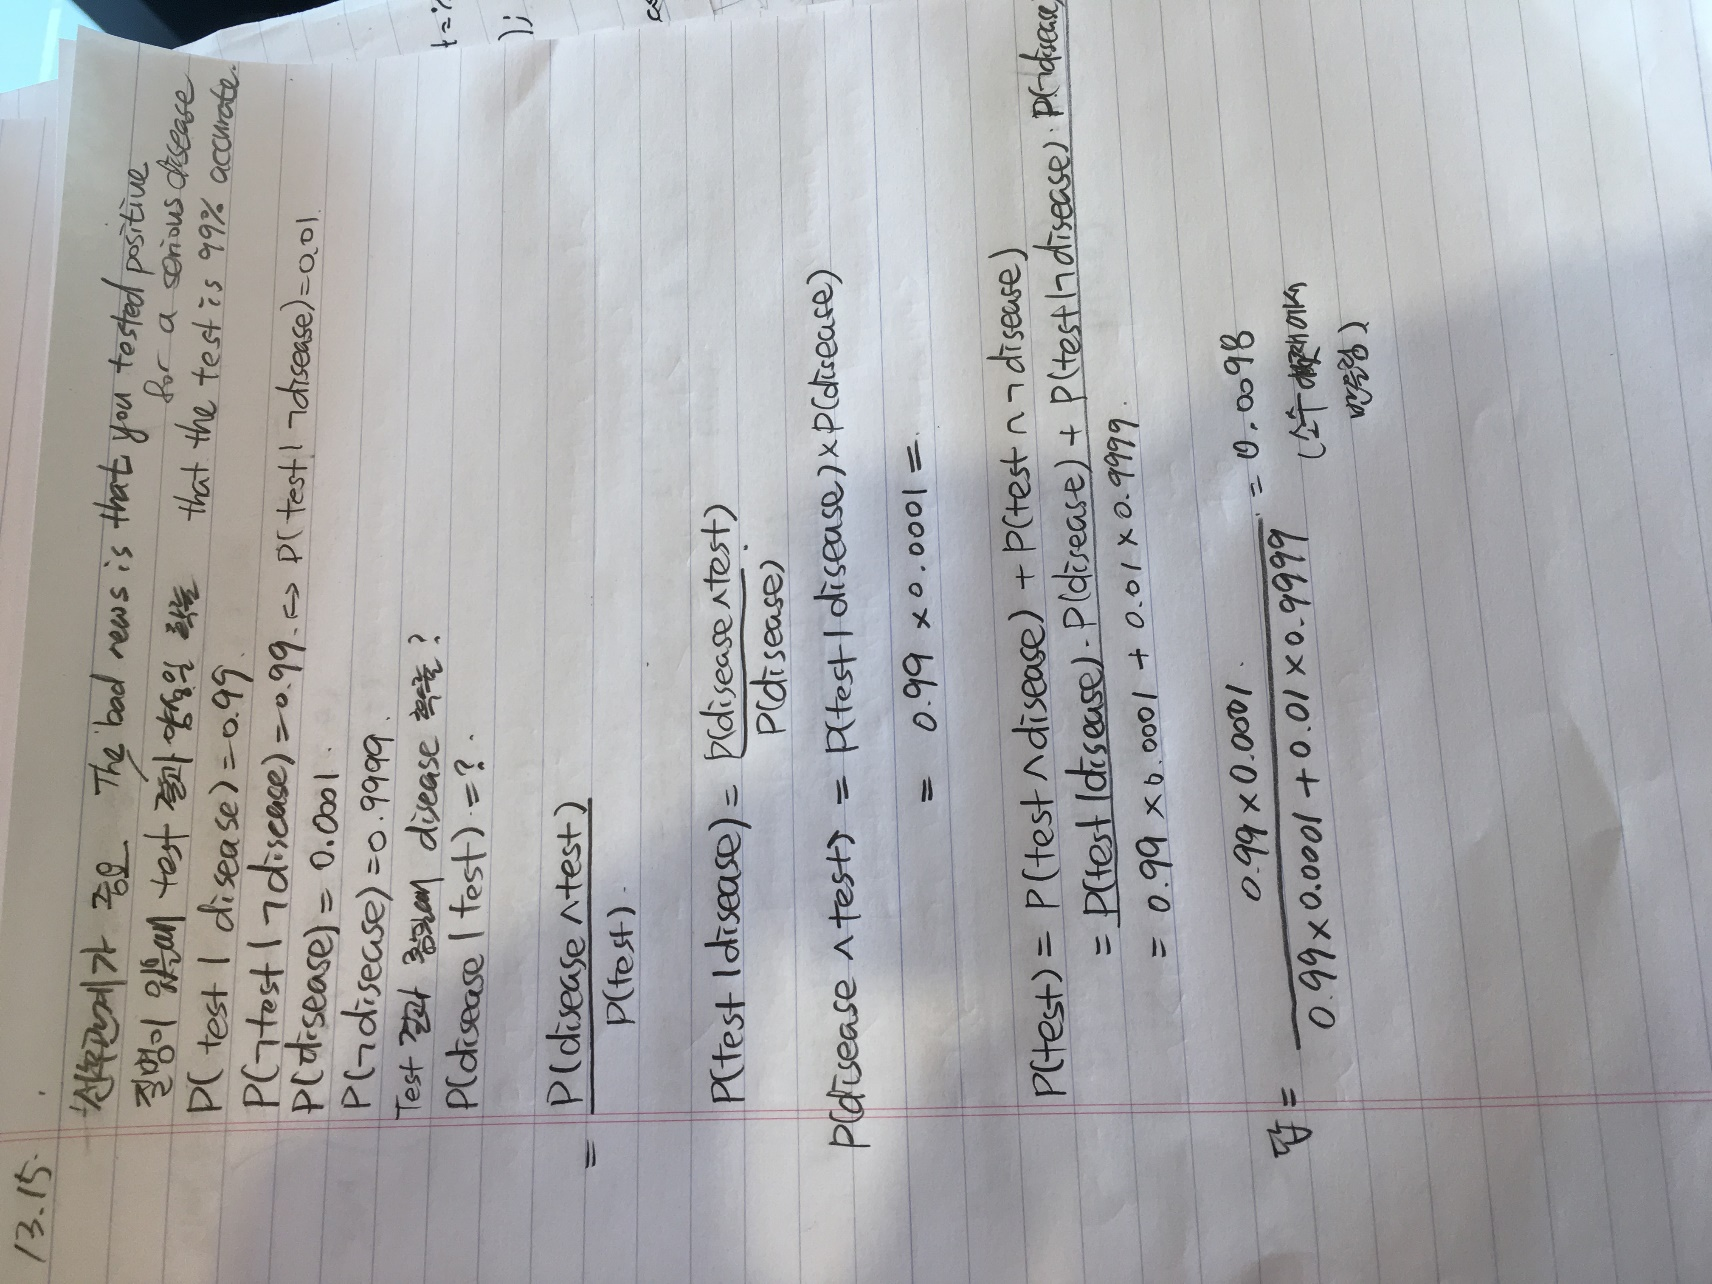 13.15.
선후관계가 중요 The bad news is that you tested positive
for a serious disease
질병이 있을때 test 결과 양성일 확률 that the test is 99% accurate.
P(test | disease) = 0.99.
P(¬test | ¬disease) = 0.99. <-> P(test | ¬disease) = 0.01.
P(disease) = 0.0001.
P(¬disease) = 0.9999.
Test 결과 disease 확률?
P(disease | test) = ?.
= P(disease ∧ test)
P(test).
P(test | disease) = P(disease ∧ test)
P(disease)
P(disease ∧ test) = P(test | disease) × P(disease)
= 0.99 × 0.0001 =
P(test) = P(test ∧ disease) + P(test ∧ ¬disease)
= P(test | disease) · P(disease) + P(test | ¬disease) · P(¬disease)
= 0.99 × 0.0001 + 0.01 × 0.9999.
0.99 × 0.0001.
답 = = 0.0098
0.99 × 0.0001 + 0.01 × 0.9999
(소수
반올림)
t =
);